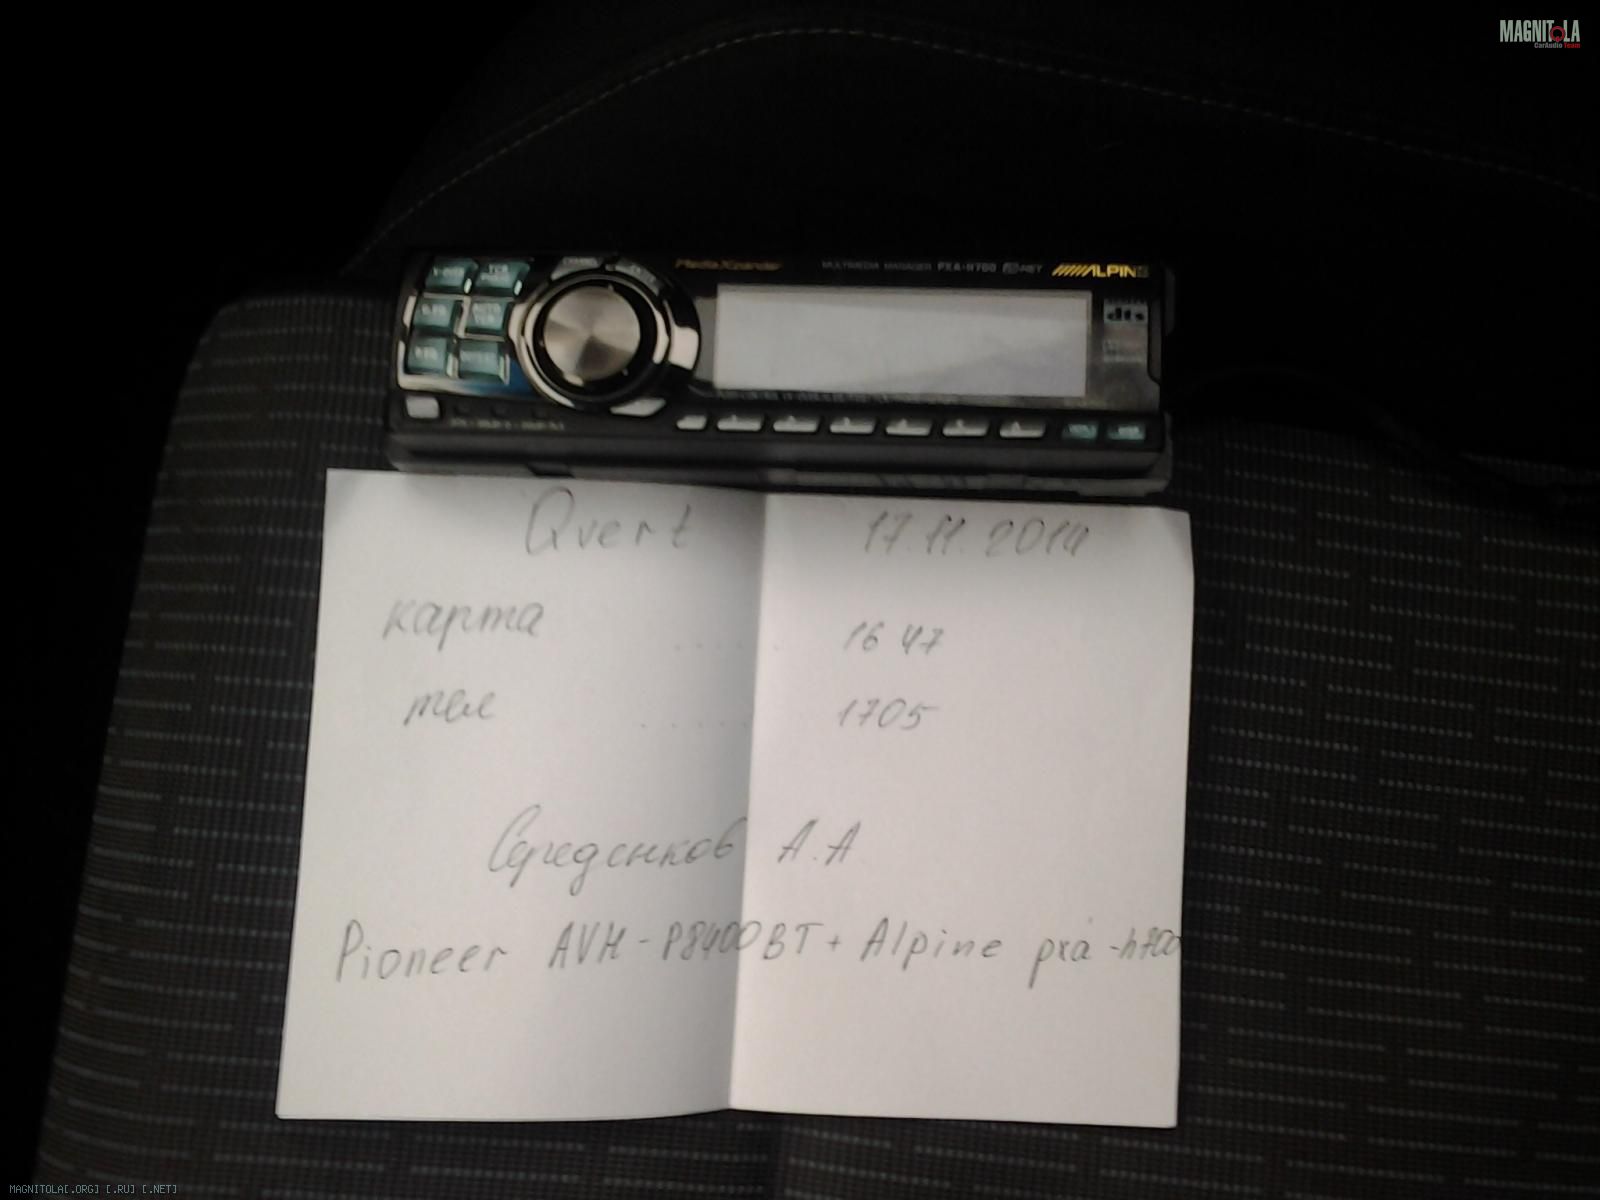 MAGNITOLA
CarAudio Team
MediaXpander
MULTIMEDIA MANAGER PXA-H700 Ai-NET ALPINE
dts
Qvert 17.11.2014
карта ..... 16 47
тел ..... 1705
Середенков А.А
Pioneer AVH-P8400BT + Alpine pxa-h700
MAGNITOLA[.ORG] [.RU] [.NET]